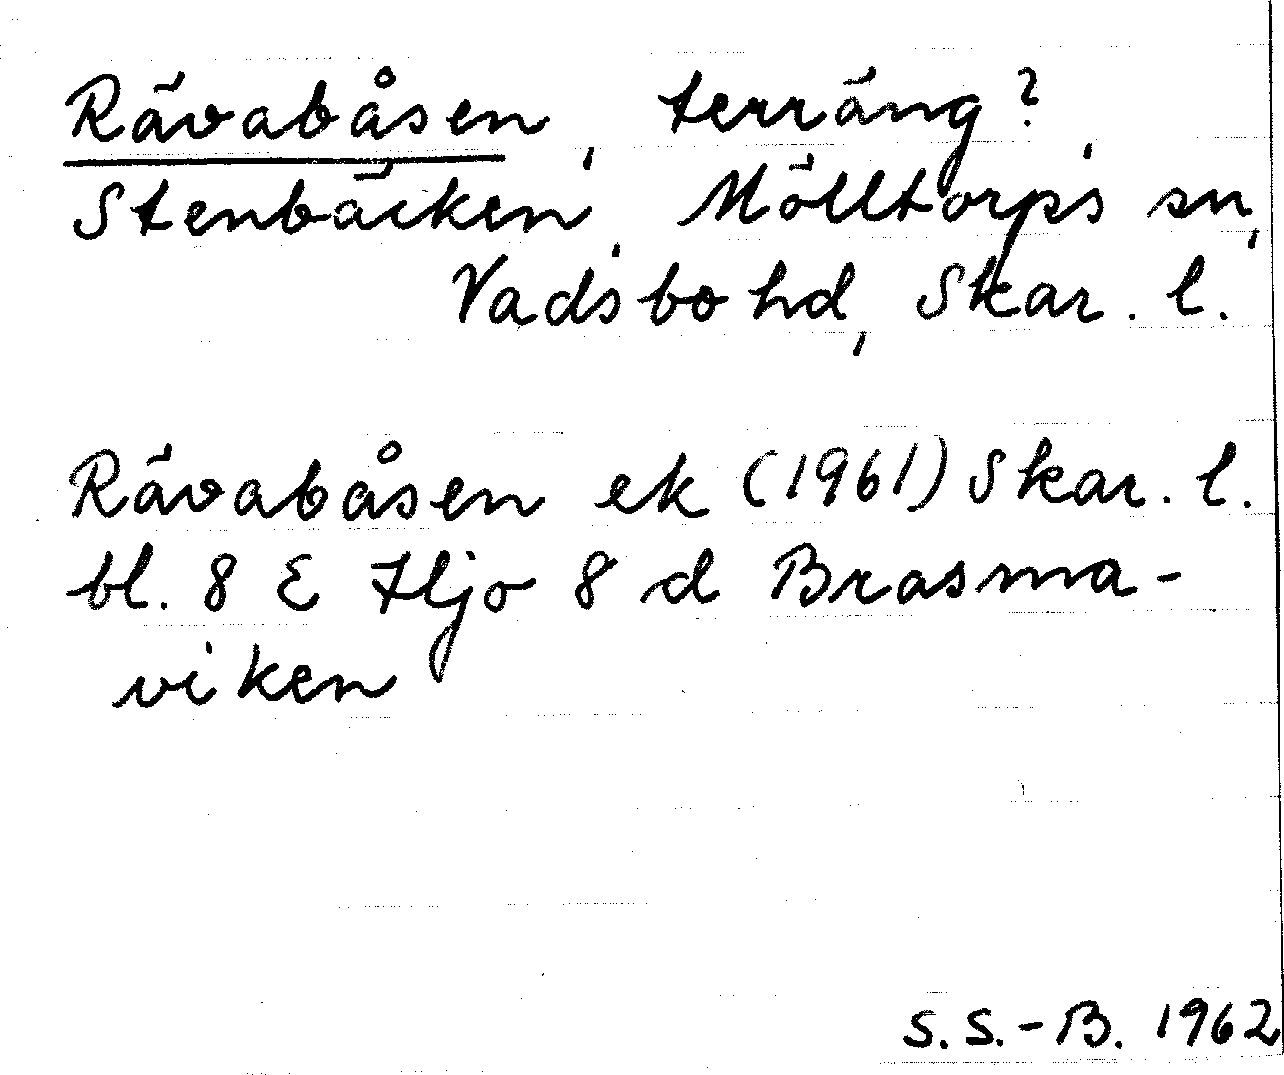 Rävabåsen, terräng?,
Stenbäcken, Mölltorps sn,
Vadsbo hd, Skar. l.
Rävabåsen ek (1961) Skar. l.
bl. 8 E Hjo 8 d Brasma-
viken
S. S.-B. 1962